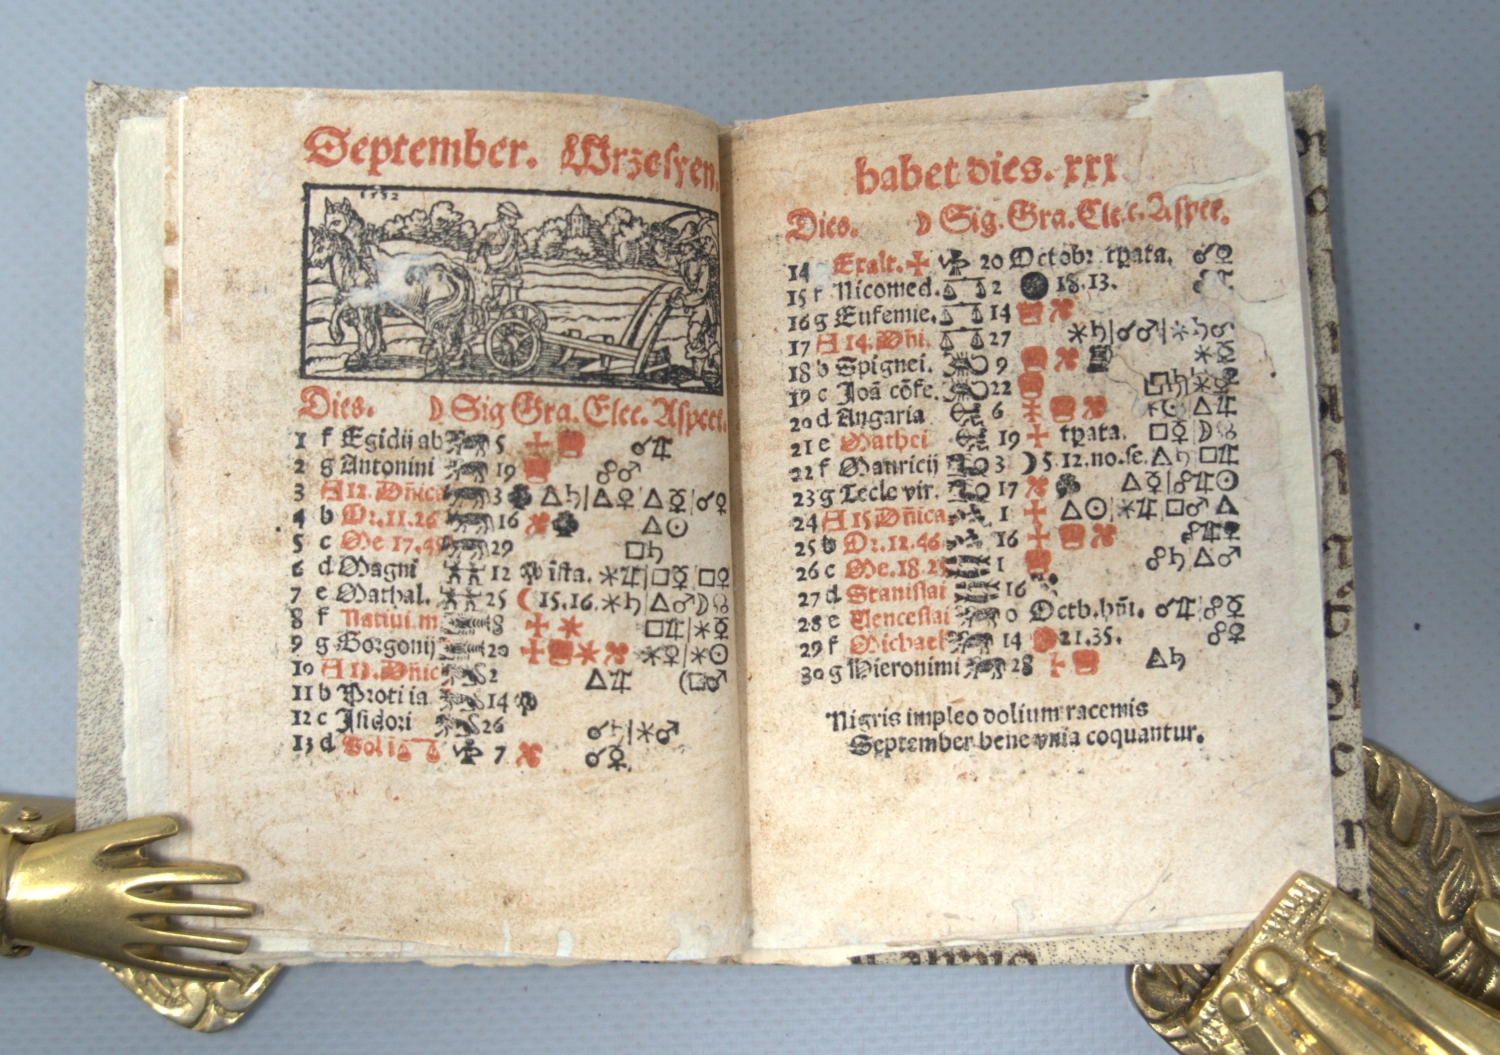 September. Wrzesyen.
1532
Dies. ☽ Sig Gra. Elec. Aspect.
1 f Egidij ab 5 ☌♃
2 g Antonini 19 ☍♂
3 A 12. Dñica 3 △♄|△♀ △☿|☌♀
4 b 16 △☉
5 c 29 □♄
6 d Magni 12 ista. ✶♃|□☿|□♀
7 e Mathal. 25 ☾ 15.16. ✶♄|△♂
8 f Natiui. m 8 □♃|✶☿
9 g Gorgonij 20 ✶♀|✶☉
10 A 13. Dñic 2 △♃ □♂
11 b Proti ia 14
12 c Isidori 26 ☌♄|✶♂
13 d 7 ☌☿
habet dies. xxx
Dies. ☽ Sig. Gra. Elec. Aspec.
14 Exalt. 20 Octobr. tpata. ☌♀
15 f Nicomed. 2 18.13.
16 g Eufemie. 14
17 A 14. Dñi. 27 ✶♄|☌♂|
18 b Spignei. 9
19 c Joã cõfe. 22
20 d Angaria 6 △♃
21 e Mathei 19 tpata. □♀
22 f Mauricij 3 ☽ 5.12. no. se. △♄ □♃
23 g Tecle vir. 17 △♀|☍♃☉
24 A 15 Dñica 1 △☉|✶♃|□♂
25 b Dr. 12. 46. 16
26 c Me. 18. 25 1 ☍♄ △♂
27 d Stanislai 16
28 e Venceslai 0 Octb. hñi. ☌♃|☍☿
29 f Michael 14 21.35. ☍♀
30 g Hieronimi 28 △♄
Nigris impleo dolium racemis
September bene vnia coquantur.